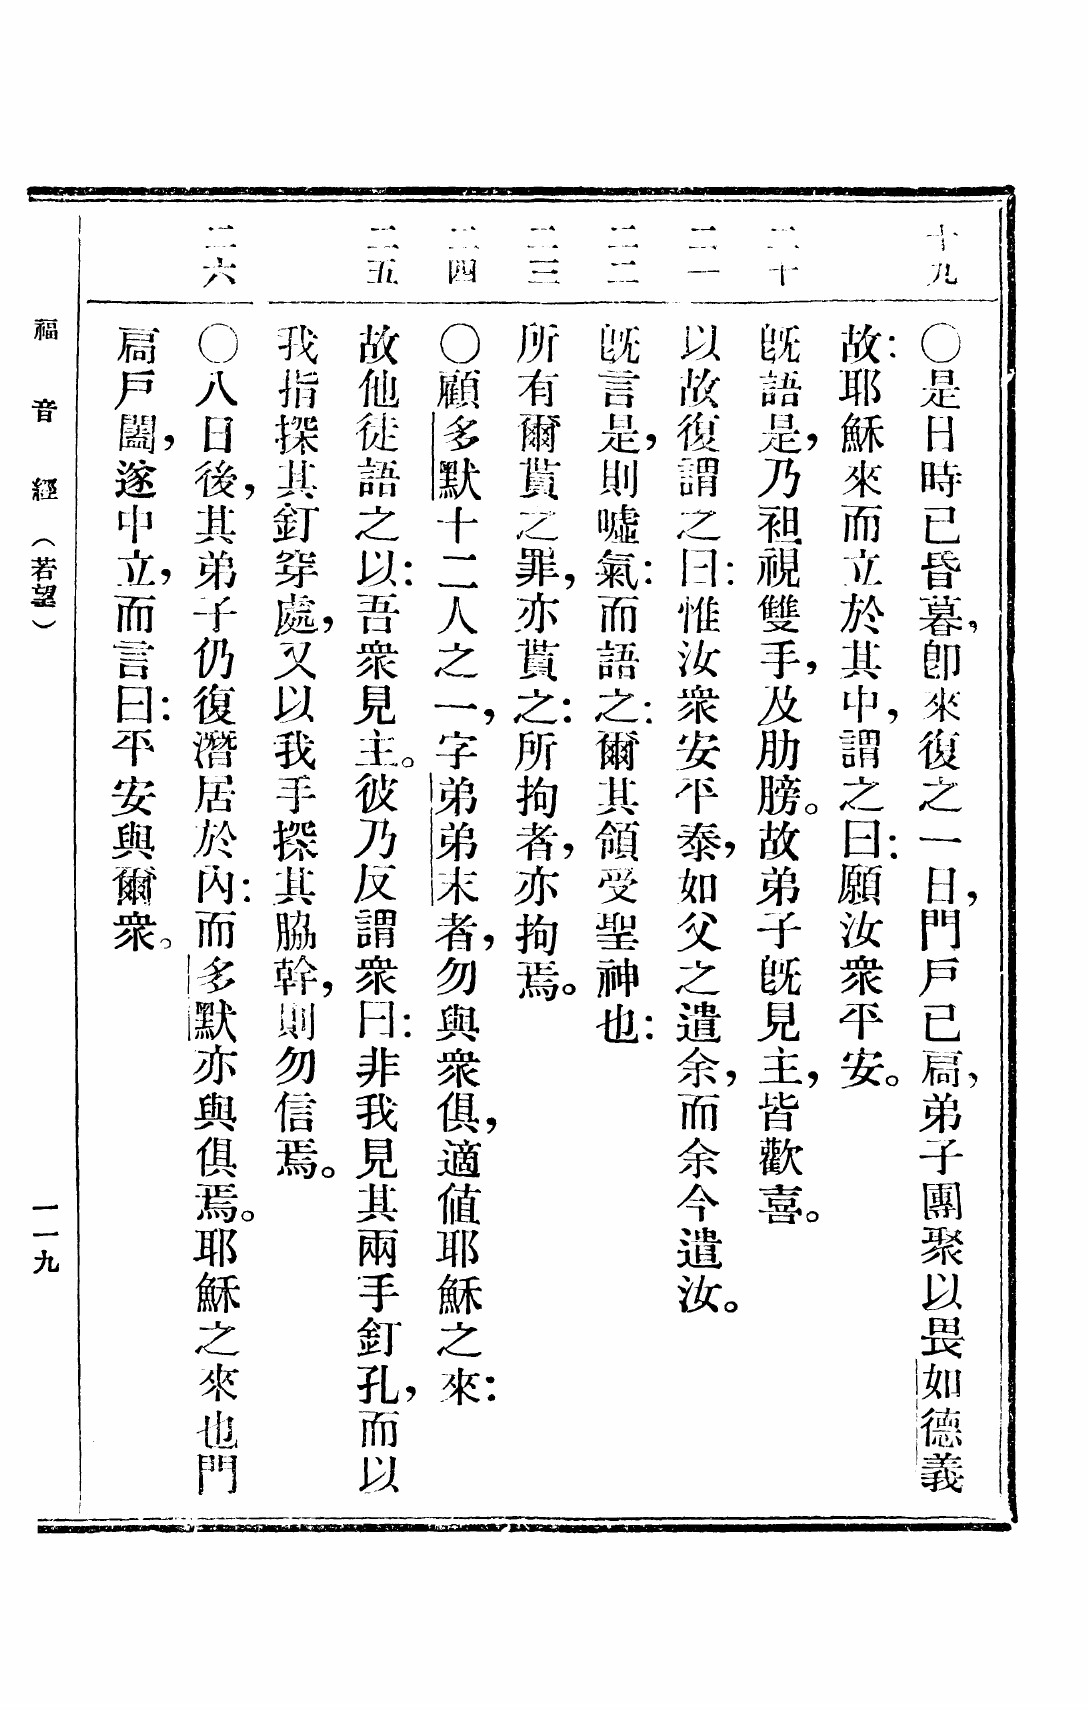 十九
○是日時已昏暮，卽來復之一日，門戶已扃，弟子團聚以畏如德義
故：耶穌來而立於其中，謂之曰：願汝衆平安。
二十
旣語是，乃袒視雙手，及肋膀。故弟子旣見主，皆歡喜。
二一
以故復謂之曰：惟汝衆安平泰，如父之遣余，而余今遣汝。
二二
旣言是，則噓氣：而語之：爾其領受聖神也：
二三
所有爾貰之罪，亦貰之：所拘者，亦拘焉。
二四
○顧多默十二人之一，字弟弟末者，勿與衆俱，適值耶穌之來：
二五
故他徒語之以：吾衆見主。彼乃反謂衆曰：非我見其兩手釘孔，而以
我指探其釘穿處，又以我手探其脇幹，則勿信焉。
二六
○八日後，其弟子仍復潛居於內：而多默亦與俱焉。耶穌之來也門
扃戶闔，遂中立，而言曰：平安與爾衆。
福音經（若望）
一一九